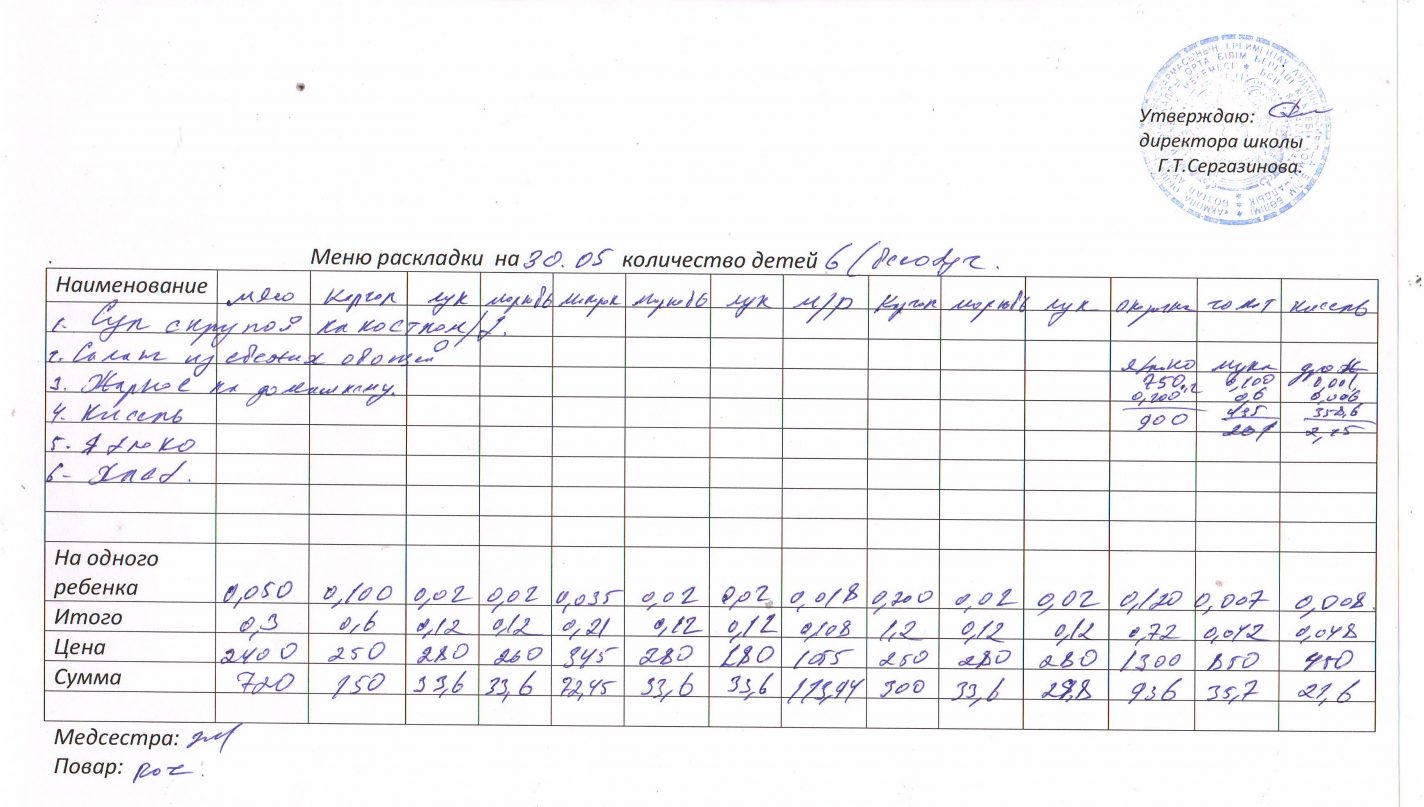 Утверждаю:
директора школы
Г.Т.Сергазинова.
Меню раскладки на 30.05 количество детей 6
Наименование мясо лук морковь морковь лук м/р морковь лук томат кисель
1. Суп с крупой на костном/б.
2. Салат из свежих овощей
яблоко мука
3. Жаркое по домашнему. 750 0,100 0,001
0,200 0,6 0,006
4. Кисель 435 358,6
900 261 2,15
5. Яблоко
6- Хлеб.
На одного
ребенка 0,050 0,100 0,02 0,02 0,035 0,02 0,02 0,018 0,200 0,02 0,02 0,120 0,007 0,008
Итого 0,3 0,6 0,12 0,12 0,21 0,12 0,12 0,108 1,2 0,12 0,12 0,72 0,042 0,048
Цена 2400 250 280 260 345 280 280 1055 250 280 280 1300 850 450
Сумма 720 150 33,6 33,6 72,45 33,6 33,6 113,94 300 33,6 936 35,7 21,6
Медсестра:
Повар: